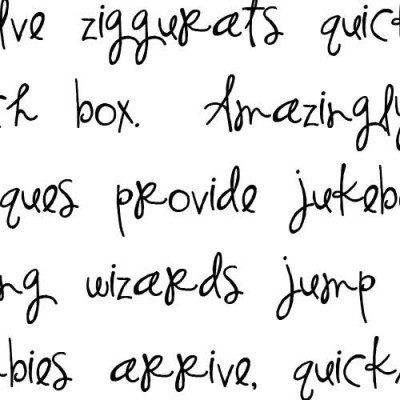 lve ziggurats quick
ch box. Amazingly
ques provide jukebo
ng wizards jump
bies arrive, quick